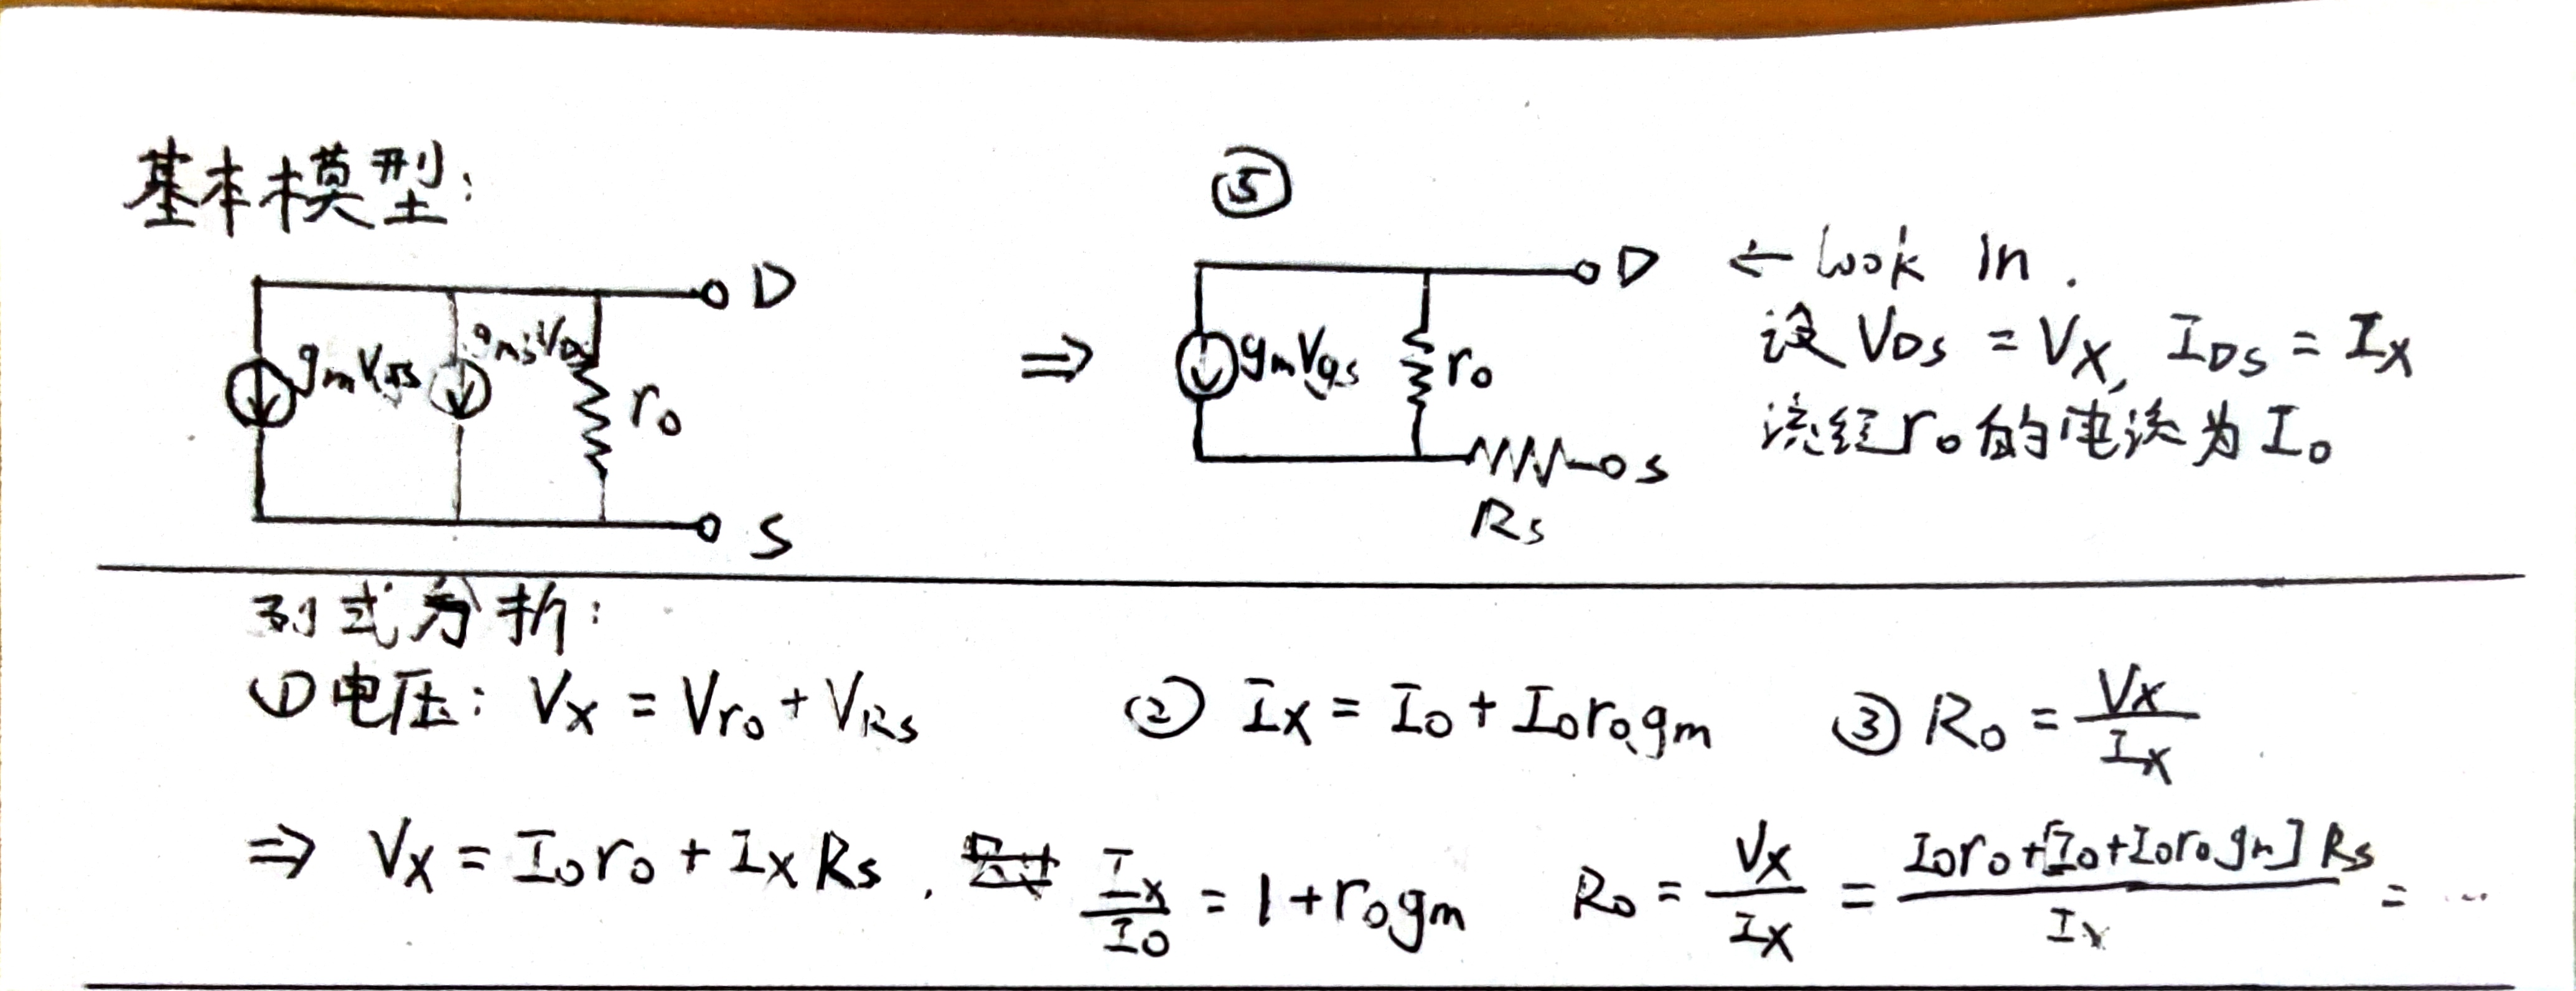 基本模型:
⑤
D
gmVgs
ro
S
⇒
D
gmVgs
ro
S
Rs
← look in.
设 VDS = VX, IDS = IX
流经ro的电流为Io
列式分析:
①电压: VX = Vro + VRs
② IX = Io + Iorogm
③ Ro = VX / IX
⇒ VX = Ioro + IXRs. IX / Io = 1 + rogm
Ro = VX / IX = Ioro + [Io + Iorogm] Rs / IX = ...